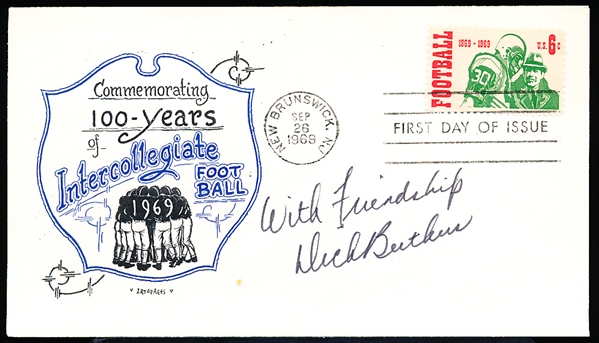 Commemorating
100-years
of
Intercollegiate
FOOT
BALL
1969
"ARTOPAGES"
NEW BRUNSWICK, N.J.
SEP
26
1969
FOOTBALL
1869-1969
U.S. 6c
30
FIRST DAY OF ISSUE
With Friendship
Dick Butkus